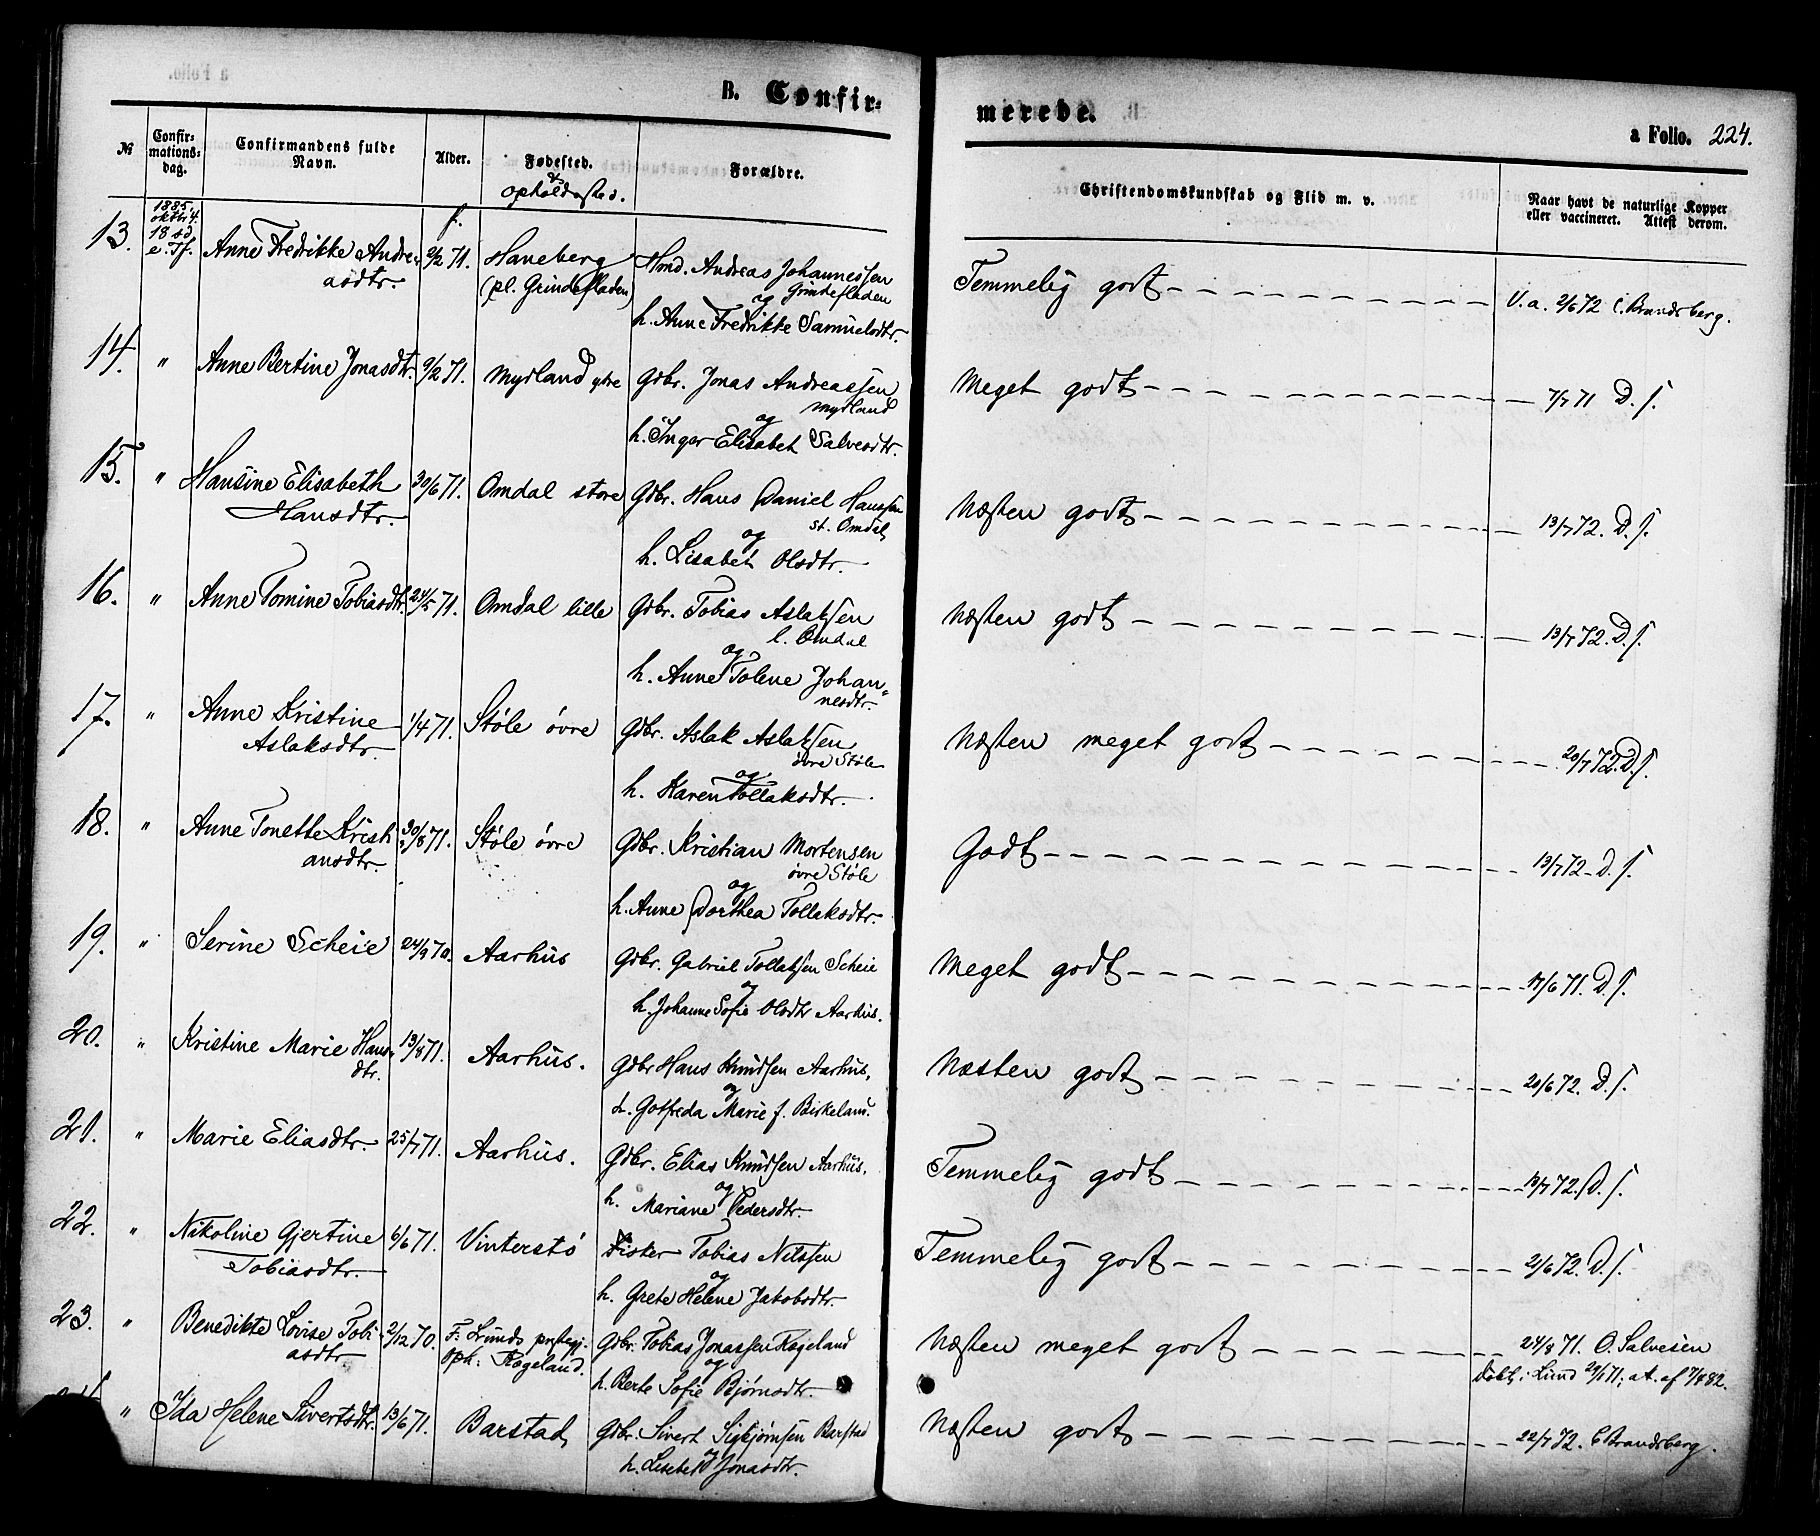 B. Confir-
merede.
a Folio. 224.
№
Confir-
mations-
dag.
Confirmandens fulde
Navn.
Alder.
Fødested.
& opholdssted.
Forældre.
Christendomskundskab og Flid m. v.
Naar havt de naturlige Kopper
eller vaccineret. Attest derom.
1885,
oktbr 4.
18 sd.
e. Tf.
f.
13. Anne Fredrikke Andre-
asdtr. 2/2 71. Haneberg
(pl. Grindefladen) Hmd. Andreas Johannessen
Grindefladen
og
h. Anne Fredrikke Samuelsdtr. Temmelig godt V. a. 2/6 72 C. Brandsberg.
14. " Anne Bertine Jonasdtr. 9/2 71. Mydland ytre Gdbr. Jonas Andreassen
Mydland
og
h. Inger Elisabet Salvesdtr. Meget godt 7/7 71 D. s.
15. " Hansine Elisabeth
Hansdtr. 30/6 71. Omdal store Gdbr. Hans Daniel Hanssen
st. Omdal
og
h. Lisabet Olsdtr. Næsten godt 13/7 72. D. s.
16. " Anne Tomine Tobiasdtr. 24/5 71. Omdal lille Gdbr. Tobias Aslaksen
l. Omdal
og
h. Anne Tolene Johan-
nesdtr. Næsten godt 13/7 72. D. s.
17. " Anne Kristine
Aslaksdtr. 1/4 71. Støle øvre Gdbr. Aslak Aslaksen
øvre Støle
og
h. Karen Tollaksdtr. Næsten meget godt 20/7 72 D. s.
18. " Anne Tonette Kristi-
ansdtr. 30/8 71. Støle øvre Gdbr. Kristian Mortensen
øvre Støle
og
h. Anne Dorthea Tollaksdtr. Godt 13/7 72 - D. s.
19. " Serine Scheie 24/9 70. Aarhus Gdbr. Gabriel Tollaksen Scheie
og
h. Johanne Sofie Olsdtr Aarhus. Meget godt 17/6 71. D. s.
20. " Kristine Marie Hans-
dtr. 13/8 71. Aarhus. Gdbr Hans Knudsen Aarhus,
og
h. Gotfreda Marie f. Birkeland. Næsten godt 20/6 72. D. s.
21. " Marie Eliasdtr. 25/7 71. Aarhus. Gdbr. Elias Knudsen Aarhus,
og
h. Mariane Pedersdtr. Temmelig godt 13/7 72. D. s.
22. " Nikoline Gjertine
Tobiasdtr. 6/6 71. Vinterstø Fisker Tobias Nilssen
og
h. Grete Helene Jakobsdtr. Temmelig godt 2/6 72. D. s.
23. " Benedikte Lovise Tobi-
asdtr. 2/12 70. F: Lunds prstegj.
oph: Rægeland. Gdbr. Tobias Jonassen Rægeland
og
h. Berte Sofie Bjørnsdtr. Næsten meget godt 24/8 71. O. Salvesen
Døbt i Lund 29/1 71; at. af 7/8 82.
" Ida Helene Sivertsdtr. 13/6 71. Barstad Gdbr. Sivert Sigbjørnsen Barstad
og
h. Lisebet Jonasdtr. Næsten godt 22/7 72. C Brandsberg.